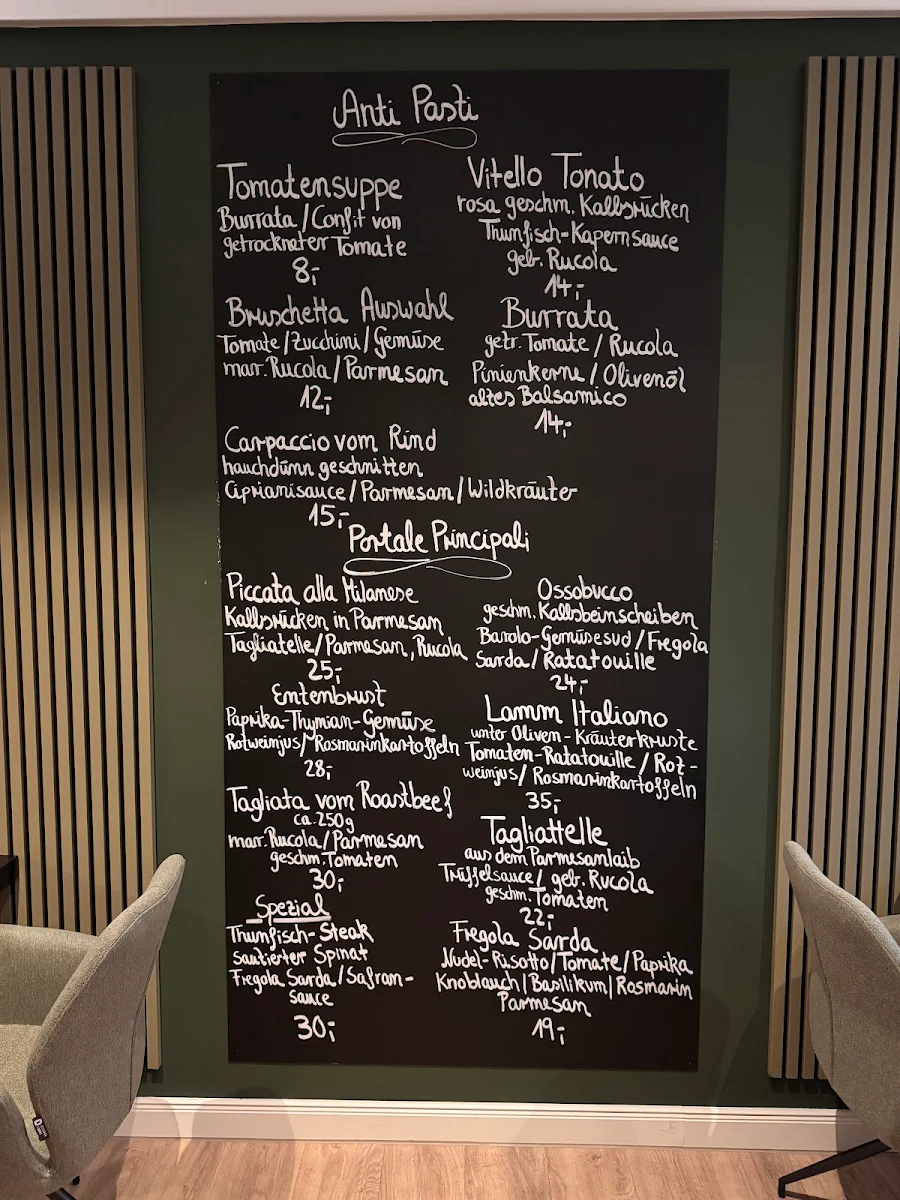 Anti Pasti
Tomatensuppe
Burrata / Confit von
getrockneter Tomate
8,-
Vitello Tonato
rosa geschm. Kalbsrücken
Thunfisch-Kapernsauce
gebr. Rucola
14,-
Bruschetta Auswahl
Tomate / Zucchini / Gemüse
mar. Rucola / Parmesan
12,-
Burrata
getr. Tomate / Rucola
Pinienkerne / Olivenöl
altes Balsamico
14,-
Carpaccio vom Rind
hauchdünn geschnitten
Ciprianisauce / Parmesan / Wildkräuter
15,-
Portale Principali
Piccata alla Milanese
Kalbsrücken in Parmesan
Tagliatelle / Parmesan, Rucola
25,-
Ossobucco
geschm. Kalbsbeinscheiben
Barolo-Gemüsesud / Fregola
Sarda / Ratatouille
24,-
Entenbrust
Paprika-Thymian-Gemüse
Rotweinjus / Rosmarinkartoffeln
28,-
Lamm Italiano
unter Oliven-Kräuterkruste
Tomaten-Ratatouille / Rot-
weinjus / Rosmarinkartoffeln
35,-
Tagliata vom Roastbeef
ca. 250g
mar. Rucola / Parmesan
geschm. Tomaten
30,-
Tagliattelle
aus dem Parmesanlaib
Trüffelsauce / gebr. Rucola
geschm. Tomaten
22,-
Spezial
Thunfisch-Steak
sautierter Spinat
Fregola Sarda / Safran-
sauce
30,-
Fregola Sarda
Nudel-Risotto / Tomate / Paprika
Knoblauch | Basilikum | Rosmarin
Parmesan
19,-